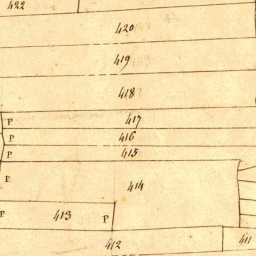 422
420
419
418
P 417
P 416
P 415
P 414
P 413 P
412 411